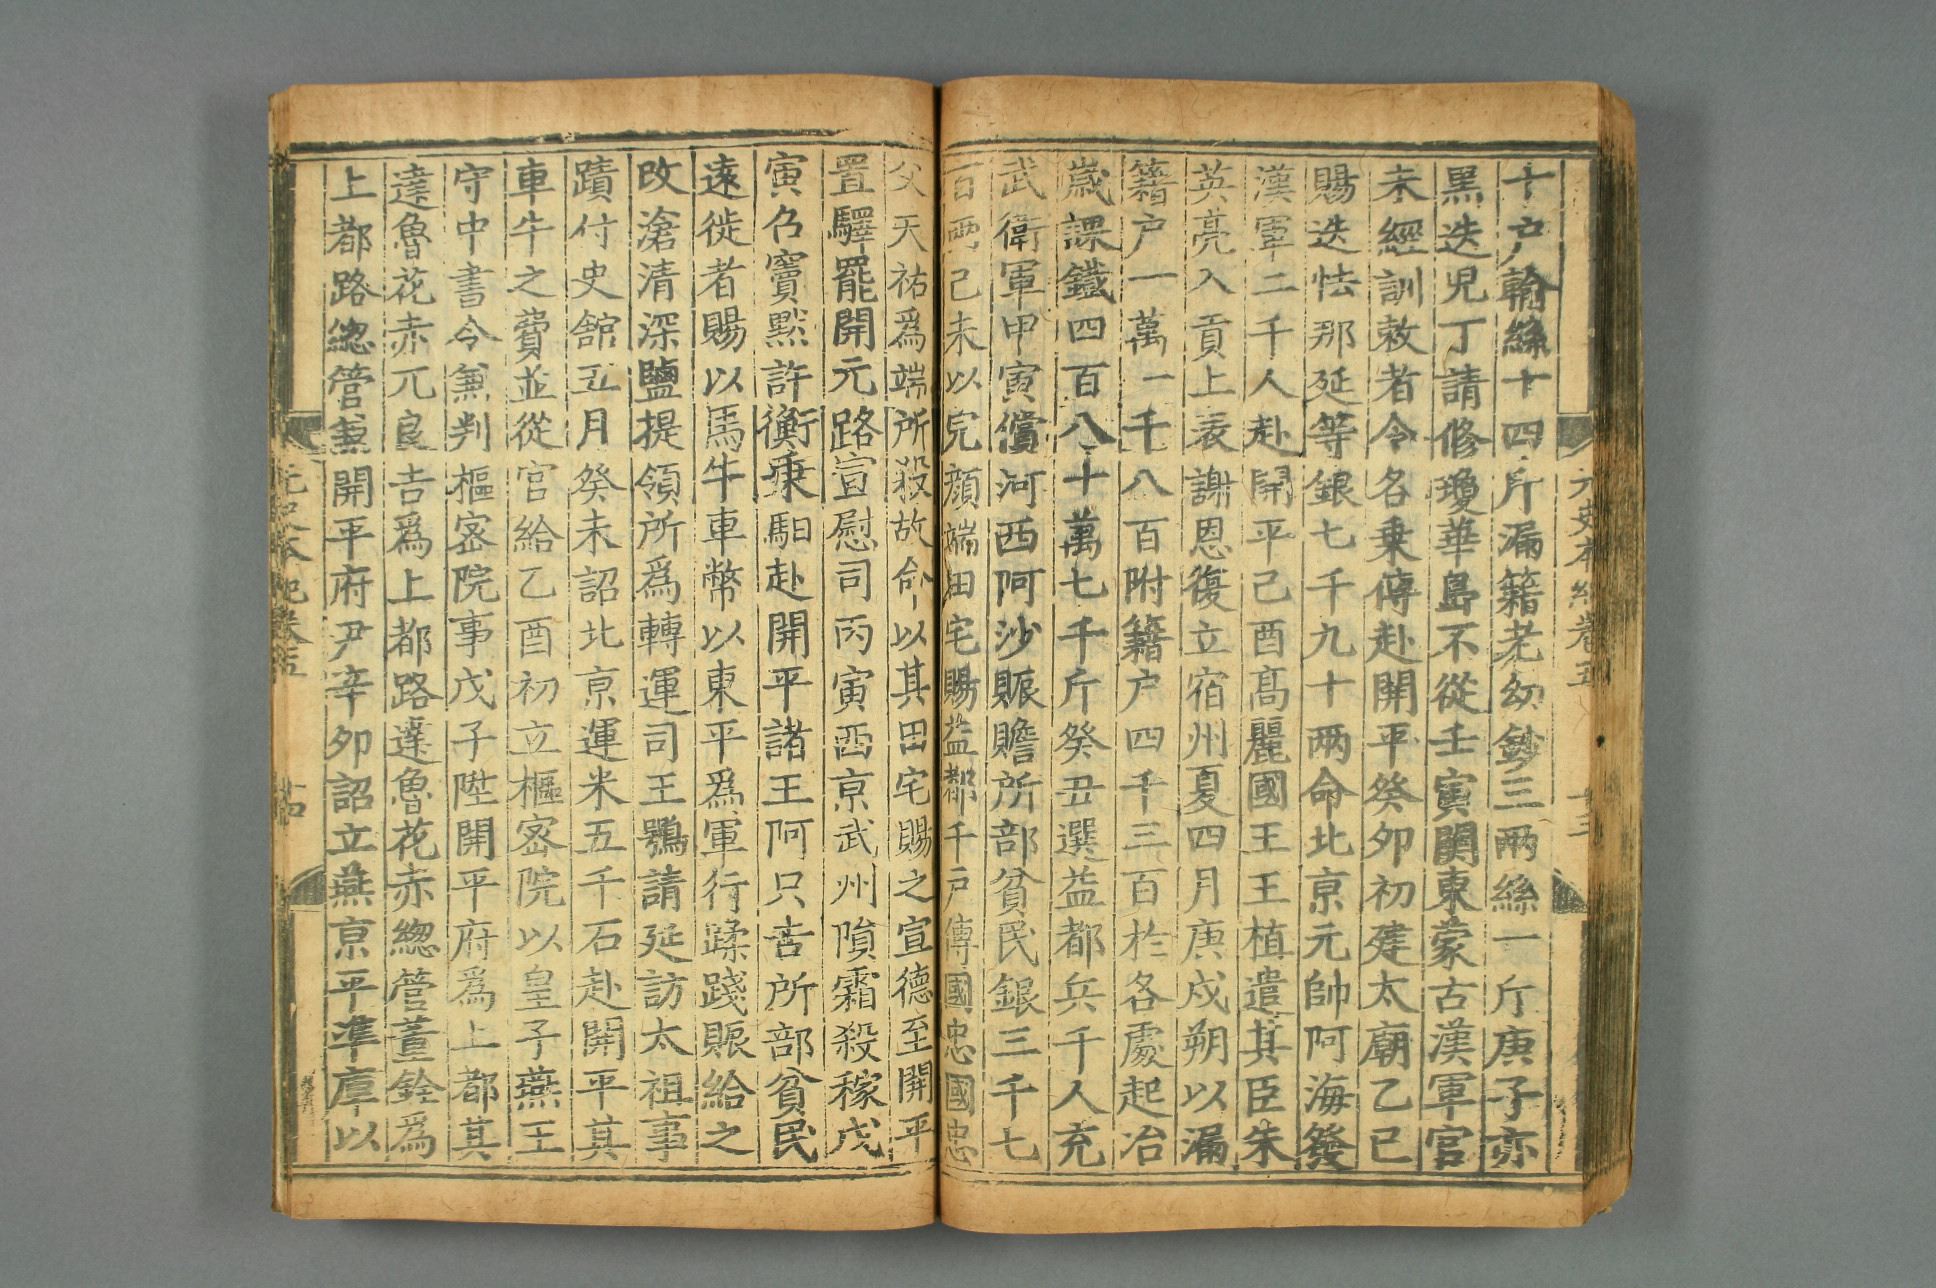 元史本紀卷五
十三
十戶輸絲十四斤漏籍老幼鈔三兩絲一斤庚子亦
黑迭児丁請修瓊華島不從壬寅閱東蒙古漢軍官
未經訓敕者令各乗傳赴開平癸卯初建太廟乙巳
賜迭怯那延等銀七千九十兩命北京元帥阿海發
漢軍二千人赴開平己酉髙麗國王王植遣其臣朱
英亮入貢上表謝恩復立宿州夏四月庚戍朔以漏
籍户一萬一千八百附籍户四千三百扵各處起冶
歳課鐵四百八十萬七千斤癸丑選益都兵千人充
武衛軍甲寅償河西阿沙賑贍所部貧民銀三千七
百兩己未以完顔端田宅賜益都千戶傳國忠國忠
父天祐爲端所殺故命以其田宅賜之宣德至開平
置驛罷開元路宣慰司丙寅西京武州隕霜殺稼戊
寅召竇黙許衡乗馹赴開平諸王阿只吉所部貧民
逺徙者賜以馬牛車幣以東平爲軍行蹂踐賑給之
改滄清深鹽提領所爲轉運司王鶚請延訪太祖事
蹟付史館五月癸未詔北京運米五千石赴開平其
車牛之費並從官給乙酉初立樞宻院以皇子燕王
守中書令兼判樞宻院事戊子陞開平府爲上都其
達魯花赤兀良吉爲上都路達魯花赤總管董銓爲
上都路總管兼開平府尹辛卯詔立燕京平準庫以
元史本紀卷五
十四